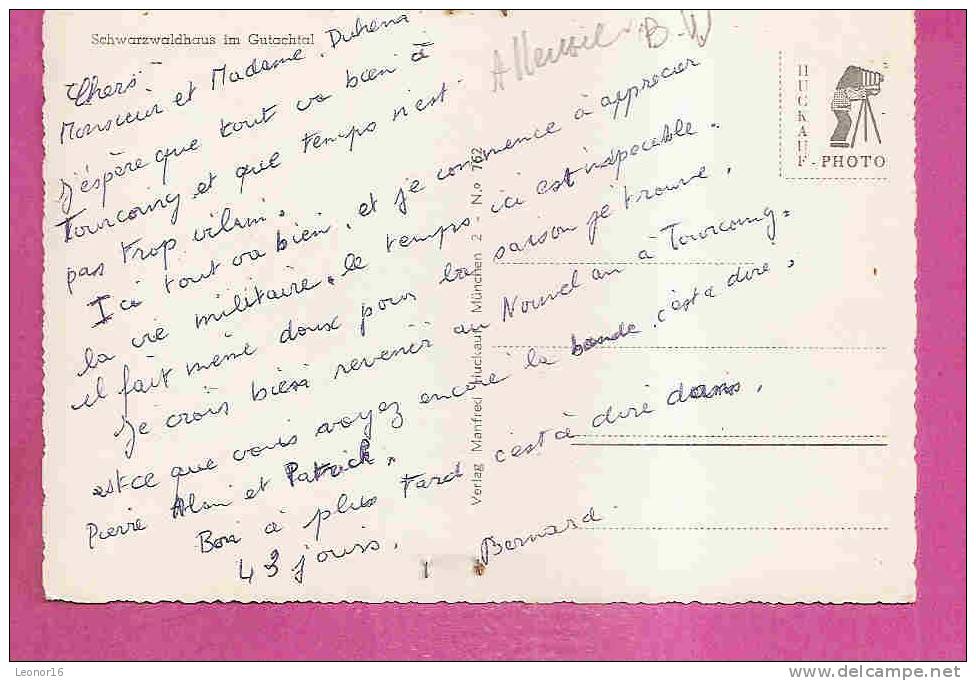 Schwarzwaldhaus im Gutachtal
B-W
HUCKAUF - PHOTO
Chers
Monsieur et Madame
j'éspère que tout va bien à
Tourcoing et que temps n'est
pas trop vilain.
Ici tout va bien, et je commence à apprecier
la vie militaire. le temps ici est inspecable.
il fait même doux pour la saison je trouve.
Je crois bien revenir au Nouvel an à Tourcoing.
est-ce que vous voyez encore la bande, c'est à dire,
Pierre Alain et Patrick.
Bon à plus tard c'est à dire dans.
43 jours.
Bernard
Verlag Manfred Huckauf München 2 - N.o 762
Leonor16
www.delcampe.net